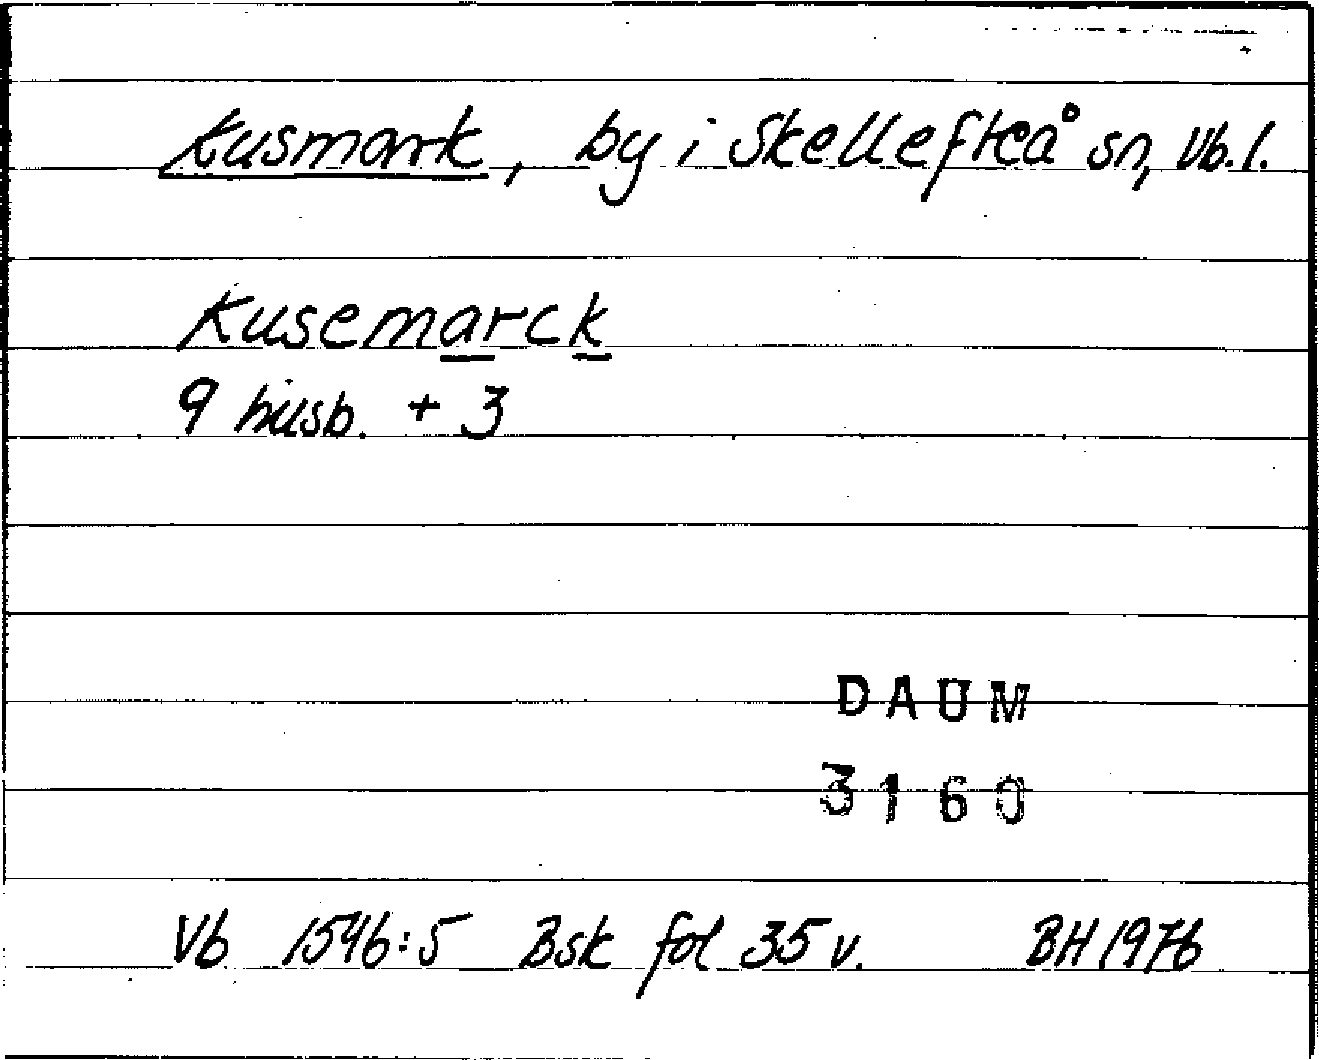 Kusmark, by i Skellefteå sn, Vb. l.
Kusemarck
9 husb. + 3
DAUM
3160
Vb 1546:5 Bsk fol 35 v. BH 1976